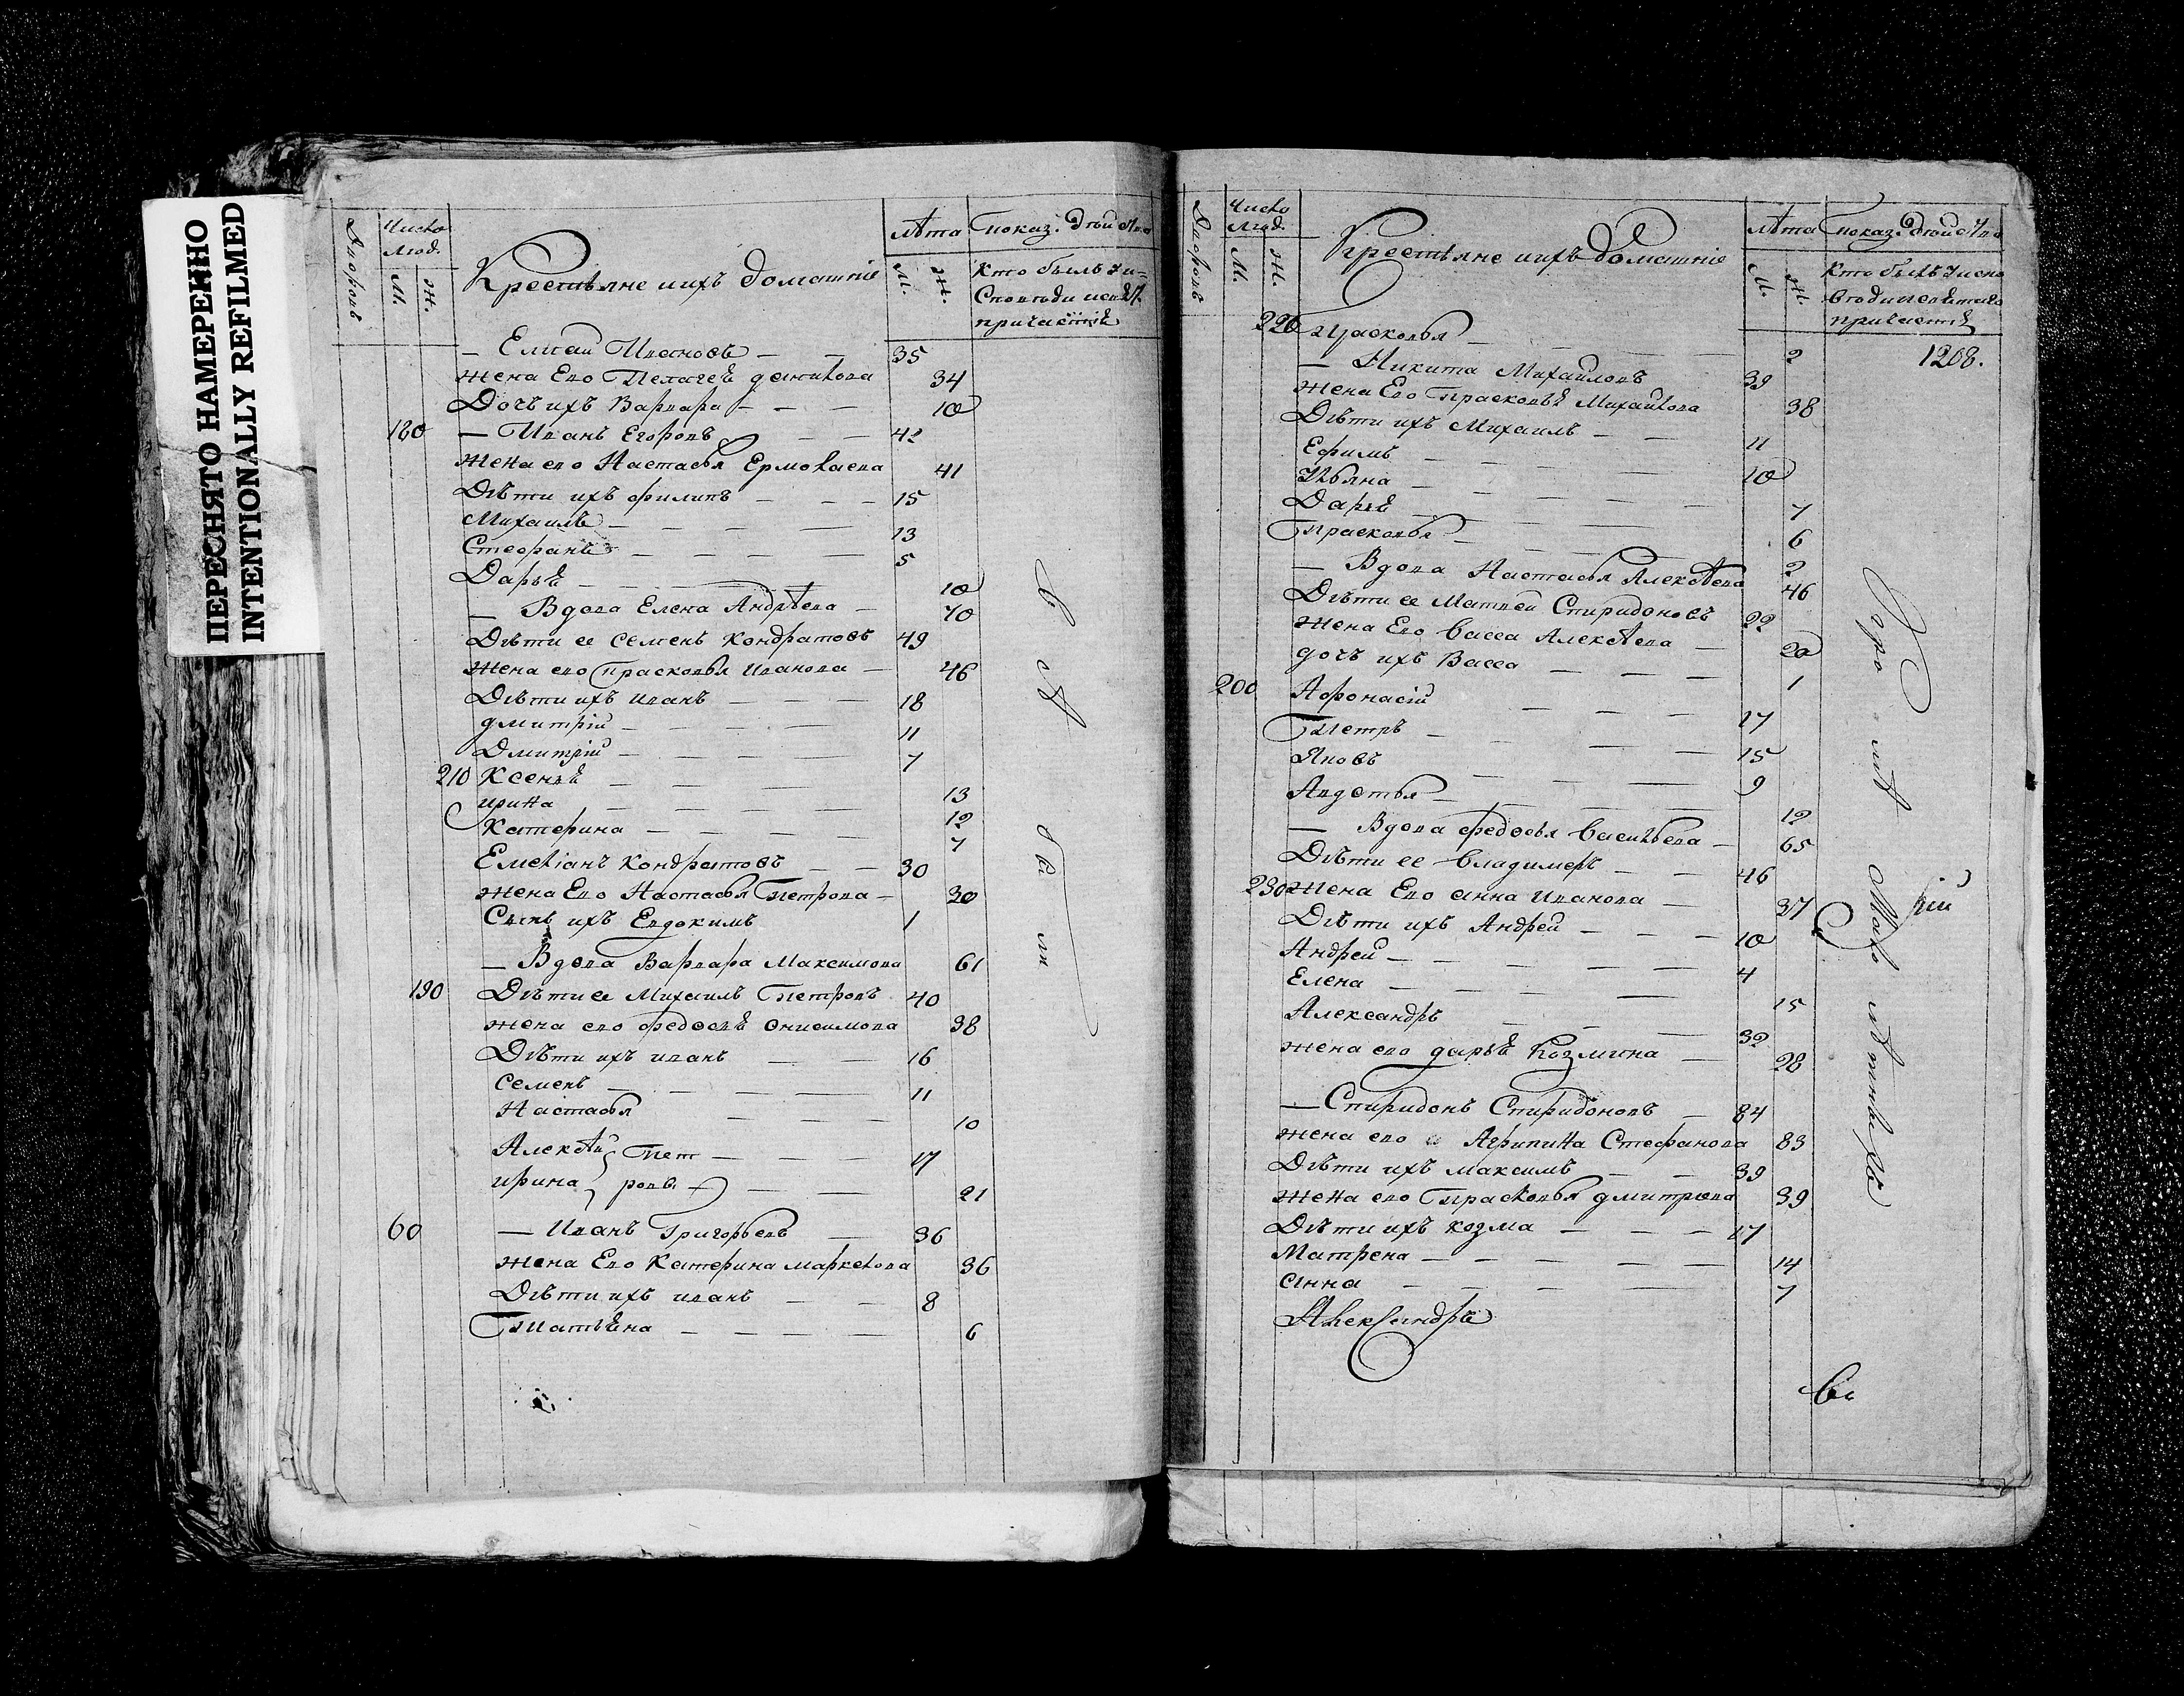 ПЕРЕСНЯТО НАМЕРЕННО
INTENTIONALLY REFILMED
Дворовъ
Число люд.
М. Ж.
Крестьяне и ихъ домашніе
Лѣта
М. Ж.
Показ. дѣйства
Кто былъ у и-
сповѣди и св. Т.
причастія
— Елисей Ивановъ — — 35
жена Его Пелагеѣ данилова 34
Дочь ихъ Варвара — — — 10
180 — Иванъ Егоровъ — — 42
жена его Настасья Ермолаева 41
Дѣти ихъ филипъ — — — 15
Михаилъ — — — — 13
Стефанъ — — — — 5
Дарьѣ — — — — 10
— Вдова Елена Андрѣева — 70
Дѣти ее Семенъ Кондратовъ 49
жена его прасковья Иванова — 46
Дѣти ихъ иванъ — — — 18
дмитрій — — — — 11
Дмитрій — — — — 7
210 Ксеньѣ — — — — 13
ирина — — — — 12
Катерина — — — — 7
Емеліанъ Кондратовъ — — 30
жена Его Настасья Петрова — 30
Сынъ ихъ Евдокимъ 1
— Вдова Варвара Максимова 61
190 Дѣти ее Михаилъ Петровъ 40
жена его федосьѣ Онисимова 38
Дѣти ихъ иванъ — — 16
Семенъ — — — — 11
Настасья — — — 10
Алексѣй } Пет — — — 17
ирина } ровы — — — 21
60 — Иванъ Григорьевъ — 36
жена Его Катерина маркелова 36
Дѣти ихъ иванъ — — 8
Татьѣна — — — — — 6
Дворовъ
Число люд.
М. Ж.
Крестьяне и ихъ домашніе
Лѣта
М. Ж.
Показ. дѣйства
Кто былъ у испо
вѣди и святаго
причастія
220 Прасковья — — — — 2
1208.
— Никита Михайловъ 39
жена Его прасковьѣ Михайлова 38
Дѣти ихъ Михаилъ — — 11
Ефимъ — — — — 10
Ульяна — — — — 7
Дарьѣ — — — — 6
Прасковья — — — — 2
— Вдова Настасья Алексѣева 46
Дѣти ее Матвей Спиридоновъ 22
жена Его Васса Алексѣева — 20
дочь ихъ Васса — — — 1
200 Афонасій — — — 17
Петръ — — — 15
Яковъ — — — — 9
Авдотья — — — — 12
— Вдова федосья Васильева — 65
Дѣти ее Владимеръ — — 46
230 жена Его анна Иванова — 37
Дѣти ихъ Андрей — — — 10
Андрей — — — — 4
Елена — — — — 15
Александръ — — — 32
жена его дарьѣ Козмина — 28
— Спиридонъ Спиридоновъ — 84
жена его Агрипина Стефанова 83
Дѣти ихъ максимъ — — 39
жена его Прасковья дмитрева 39
Дѣти ихъ козма — — — 17
Матрена — — — — — 14
анна — — — — 7
Александръ